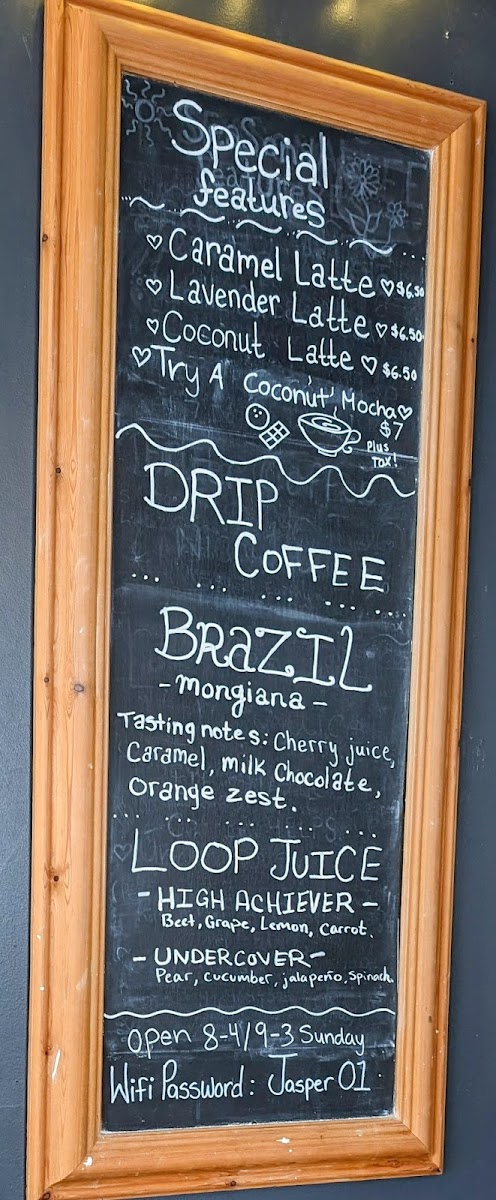 Special
features
Caramel Latte $6.50
Lavender Latte $6.50
Coconut Latte $6.50
Try A Coconut Mocha
$7
Plus
Tax!
DRIP
COFFEE
BRaZIL
- Mongiana -
Tasting notes: Cherry juice,
Caramel, milk Chocolate,
Orange zest.
LOOP JUICE
- HIGH ACHIEVER -
Beet, Grape, Lemon, Carrot.
- UNDERCOVER -
Pear, cucumber, jalapeño, Spinach.
Open 8-4/9-3 Sunday
Wifi Password: Jasper01